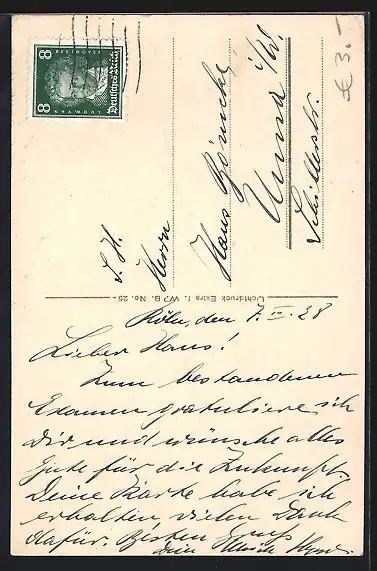 8 Deutsches Reich 8
LUDWIG VAN
BEETHOVEN
€ 3.-
S. H.
Herrn
Hans
Unna i/W.
Schillerstr.
Lichtdruck Extra f. W7 B. No. 25-
Köln, den 7. II. 28
Lieber Hans!
Zum bestandenen
Examen gratuliere ich
Dir und wünsche alles
Gute für die Zukunft.
Deine Karte habe ich
erhalten vielen Dank
dafür. Besten
Dein